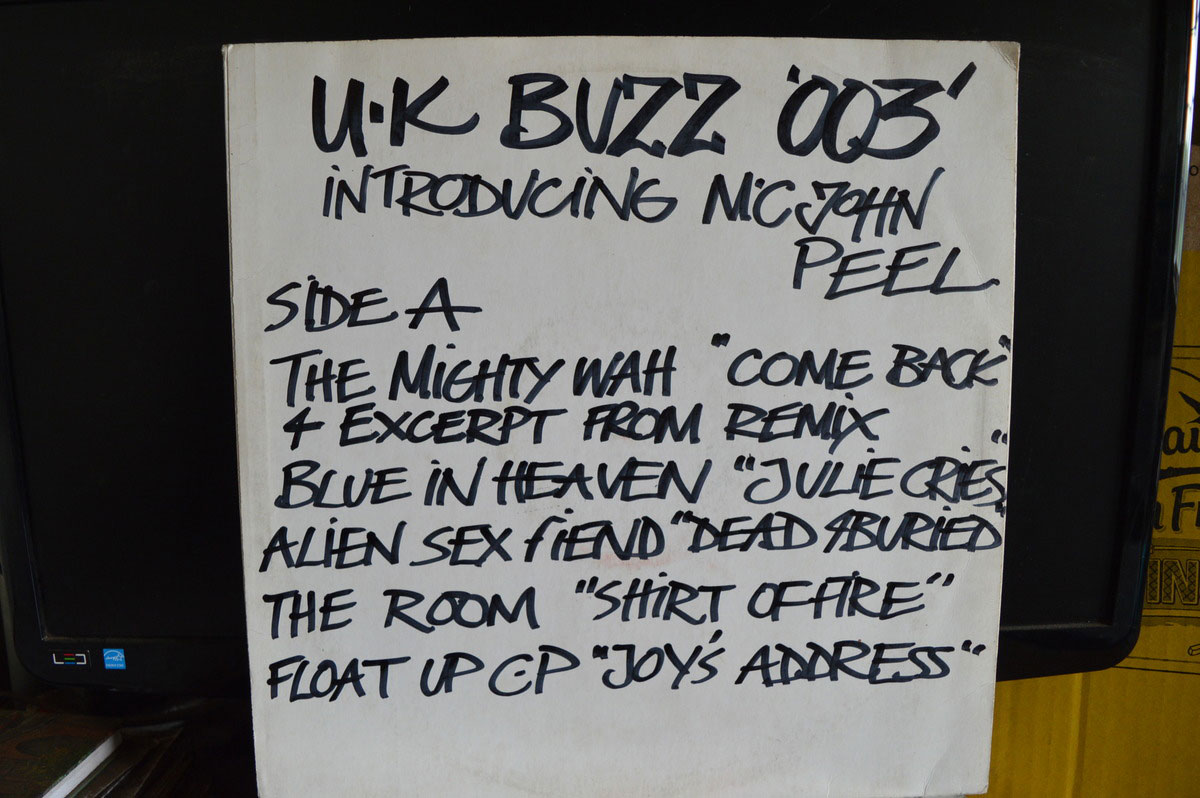 U·K BUZZ '003'
INTRODUCING MC JOHN
PEEL
SIDE A
THE MIGHTY WAH "COME BACK"
& EXCERPT FROM REMIX
BLUE IN HEAVEN "JULIE CRIES"
ALIEN SEX FIEND "DEAD & BURIED"
THE ROOM "SHIRT OF FIRE"
FLOAT UP CP "JOY'S ADDRESS"
LED